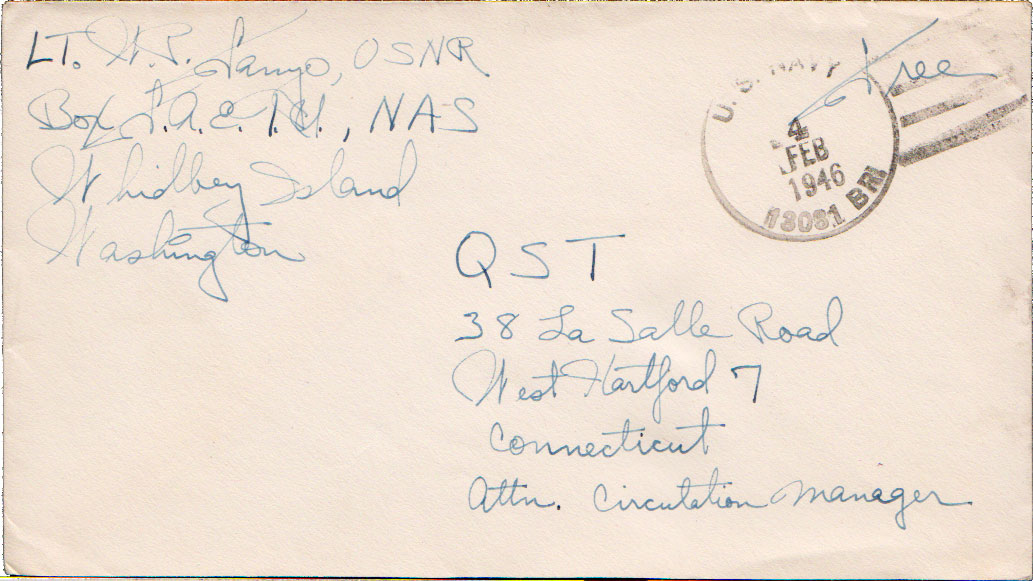 LT. USNR
Box F.A.E.T.U., NAS
Whidbey Island
Washington
Free
U.S. NAVY
4
FEB
1946
13081 BR
QST
38 La Salle Road
West Hartford 7
Connecticut
Attn. Circulation Manager